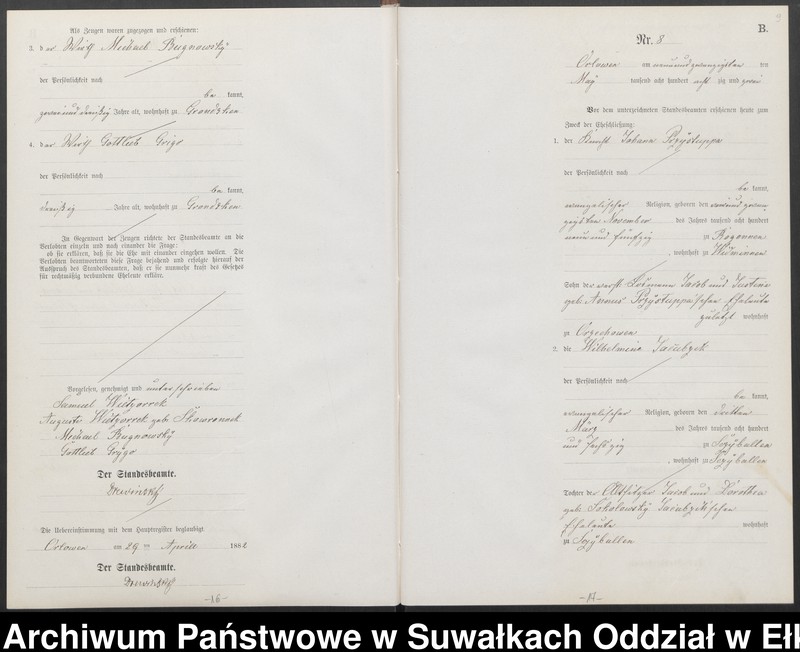 Als Zeugen waren zugezogen und erschienen:
3. der Wirth Michael Bugnowsky
der Persönlichkeit nach
be kannt,
zwei und dreißig Jahre alt, wohnhaft zu Grondzken
4. der Wirth Gottlieb Grigo
der Persönlichkeit nach
be kannt,
dreißig Jahre alt, wohnhaft zu Grondzken
In Gegenwart der Zeugen richtete der Standesbeamte an die
Verlobten einzeln und nach einander die Frage:
ob sie erklären, daß sie die Ehe mit einander eingehen wollen. Die
Verlobten beantworteten diese Frage bejahend und erfolgte hierauf der
Ausspruch des Standesbeamten, daß er sie nunmehr kraft des Gesetzes
für rechtmäßig verbundene Eheleute erkläre.
Vorgelesen, genehmigt und unterschrieben
Samuel
Auguste geb. Skowronnek
Michael Bugnowsky
Gottlieb Grygo
Der Standesbeamte.
Drewinsky
Die Uebereinstimmung mit dem Hauptregister beglaubigt
Orlowen am 29 ten Aprill 1882
Der Standesbeamte.
Drewinsky
-16-
B.
Nr. 8
Orlowen am neunundzwanzigsten ten
May tausend acht hundert acht zig und zwei
Vor dem unterzeichneten Standesbeamten erschienen heute zum
Zweck der Eheschließung:
1. der Knecht Johann Przystuppa
der Persönlichkeit nach
be kannt,
evangelischer Religion, geboren den
zigsten November des Jahres tausend acht hundert
neun und fünfzig zu Rogonnen
, wohnhaft zu Widminnen
Sohn der verst. Losmann Jacob und Justine
geb. Przystuppa'schen Eheleute
zuletzt wohnhaft
zu Orzechowen
2. die Wilhelmine Jacubzik
der Persönlichkeit nach
be kannt,
evangelischer Religion, geboren den dritten
März des Jahres tausend acht hundert
und sechszig zu Sczyballen
, wohnhaft zu Sczyballen
Tochter der Altsitzer Jacob und Dorothea
geb. Sokolowsky Jacubzik'schen
Eheleute wohnhaft
zu Sczyballen
-17-
Archiwum Państwowe w Suwałkach Oddział w Ełk